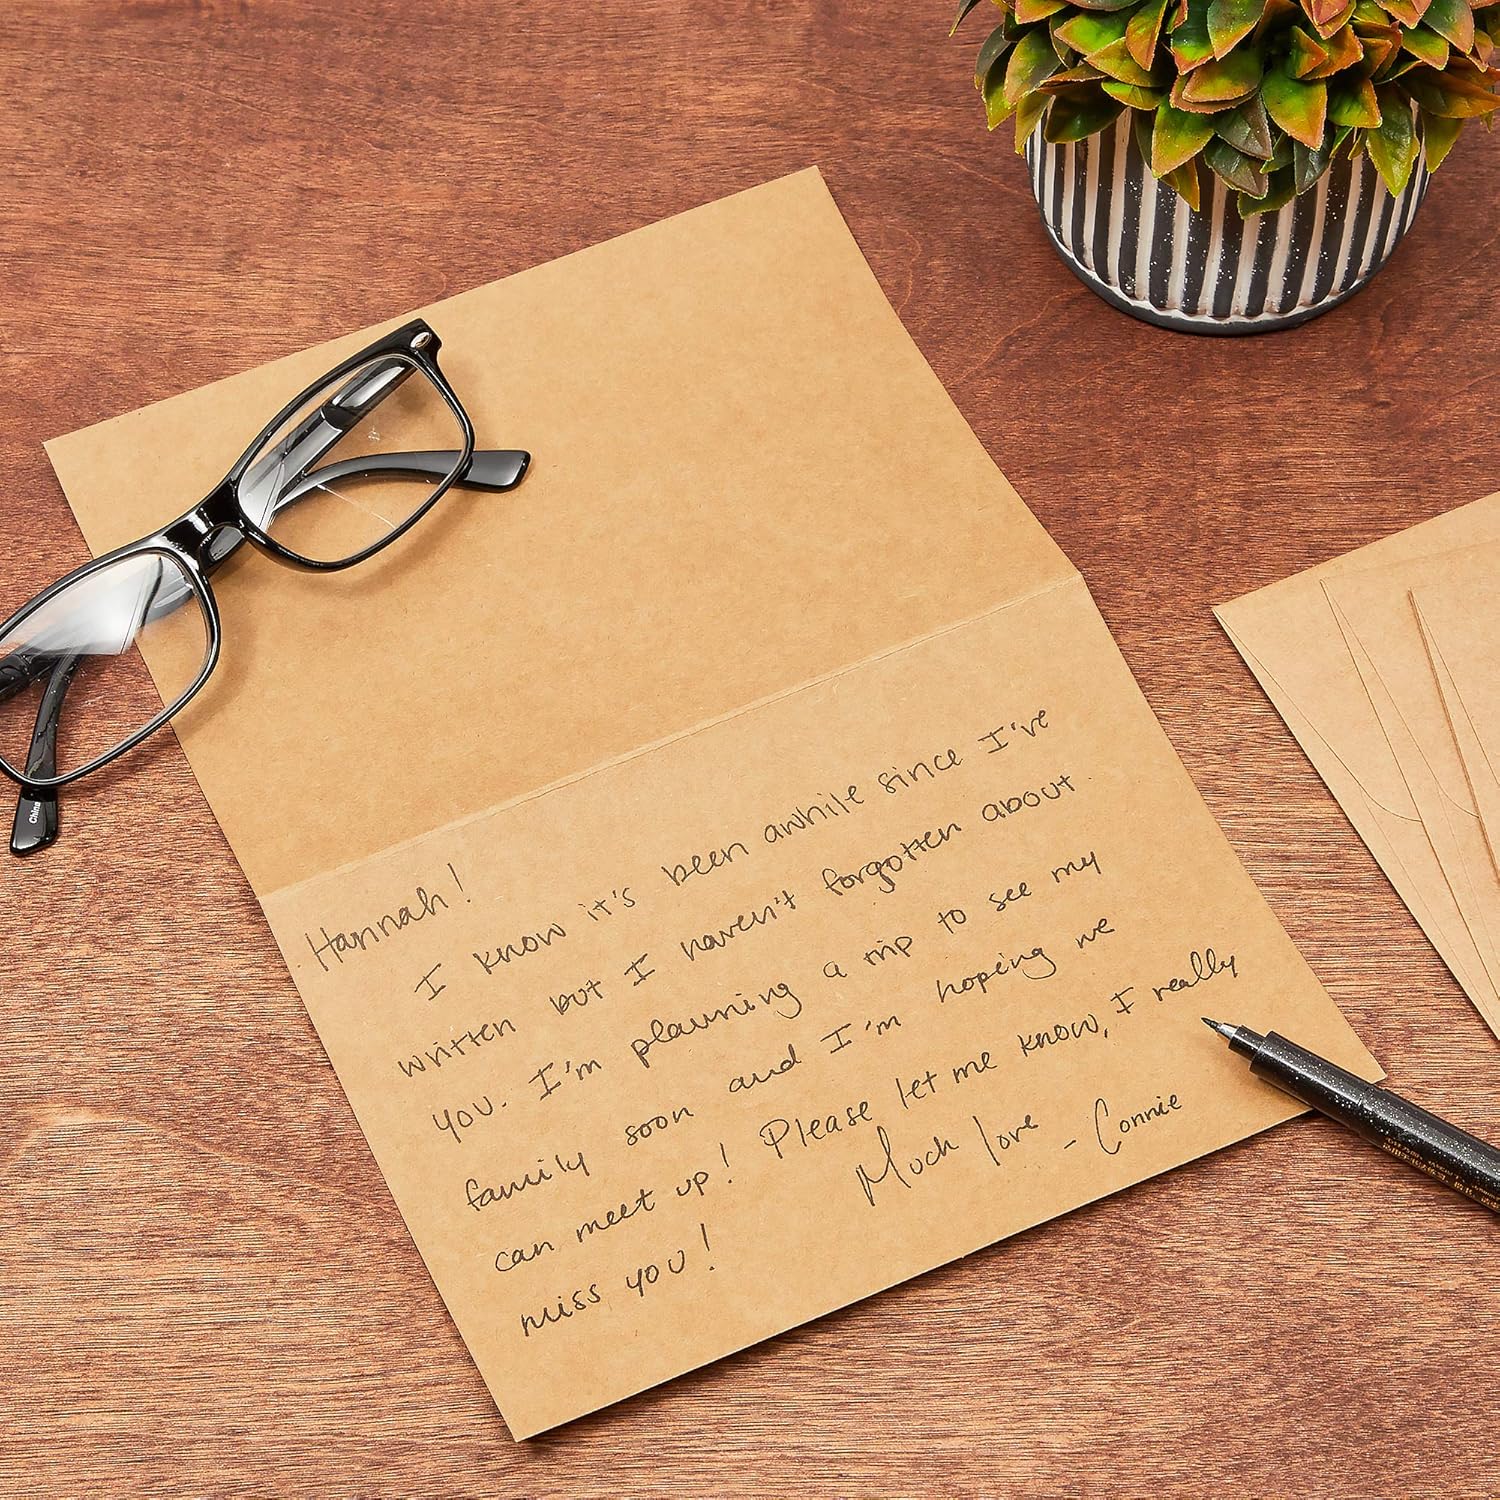 Hannah!
I know it's been awhile since I've
written but I haven't forgotten about
you. I'm planning a trip to see my
family soon and I'm hoping we
can meet up! Please let me know, I really
miss you!
Much love - Connie
China